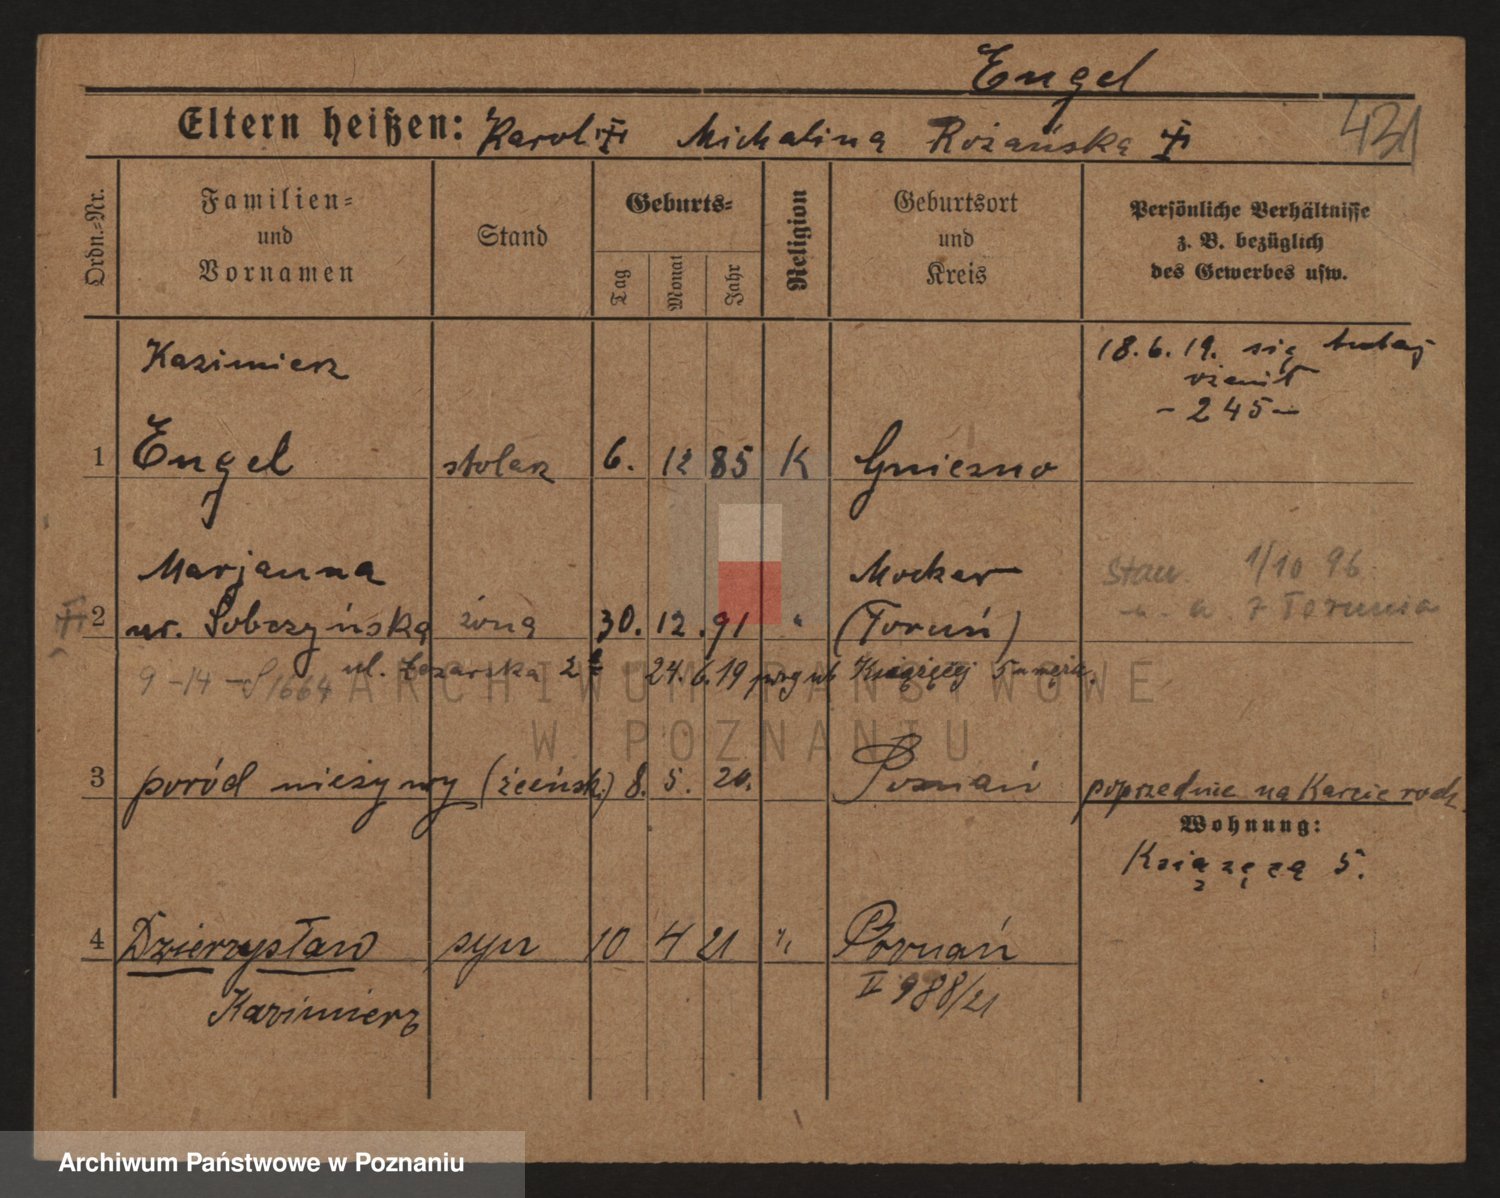 Engel
Eltern heißen: Karol Michalina Rożańska
421
Ordn.-Nr.
Familien- und Vornamen
Stand
Geburts-
Tag
Monat
Jahr
Religion
Geburtsort und Kreis
Persönliche Verhältnisse
z. B. bezüglich
des Gewerbes usw.
Kazimierz
18.6.19. się tutaj
ożenił
- 245 -
1 Engel stolarz 6. 12 85 K Gniezno
Marjanna Mocker
Stan 1/10 96
2 ur. Sobczyńska żona 30. 12. 91 " (Toruń)
z Torunia
9 - 14 - S 1664 ul. 24. 6. 19 Książęcej 5 męża.
3 poród nieżywy (żeńsk.) 8. 5. 20. Poznań poprzednie na Karcie rodz.
Wohnung:
Książęca 5.
4 Dzierzysław syn 10 4 21 Poznań
Kazimierz
II 988/21
ARCHIWUM PAŃSTWOWE
W POZNANIU
Archiwum Państwowe w Poznaniu